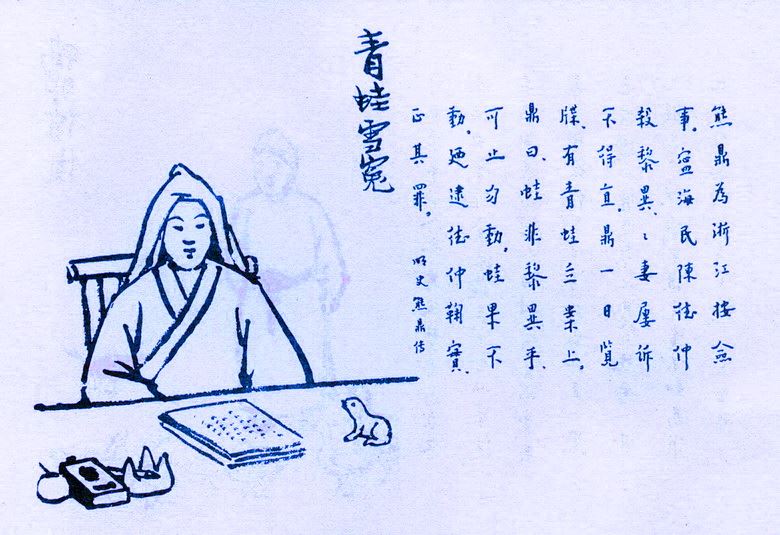 青蛙雪冤
熊鼎為浙江按佥
事。寍海民陳徳仲
殺黎異、〻妻屢訴
不得直。鼎一日覽
牒。有青蛙立案上。
鼎曰、蛙非黎異乎、
可止勿動。蛙果不
動。廼逮徳仲鞫實
正其罪。 明史熊鼎传